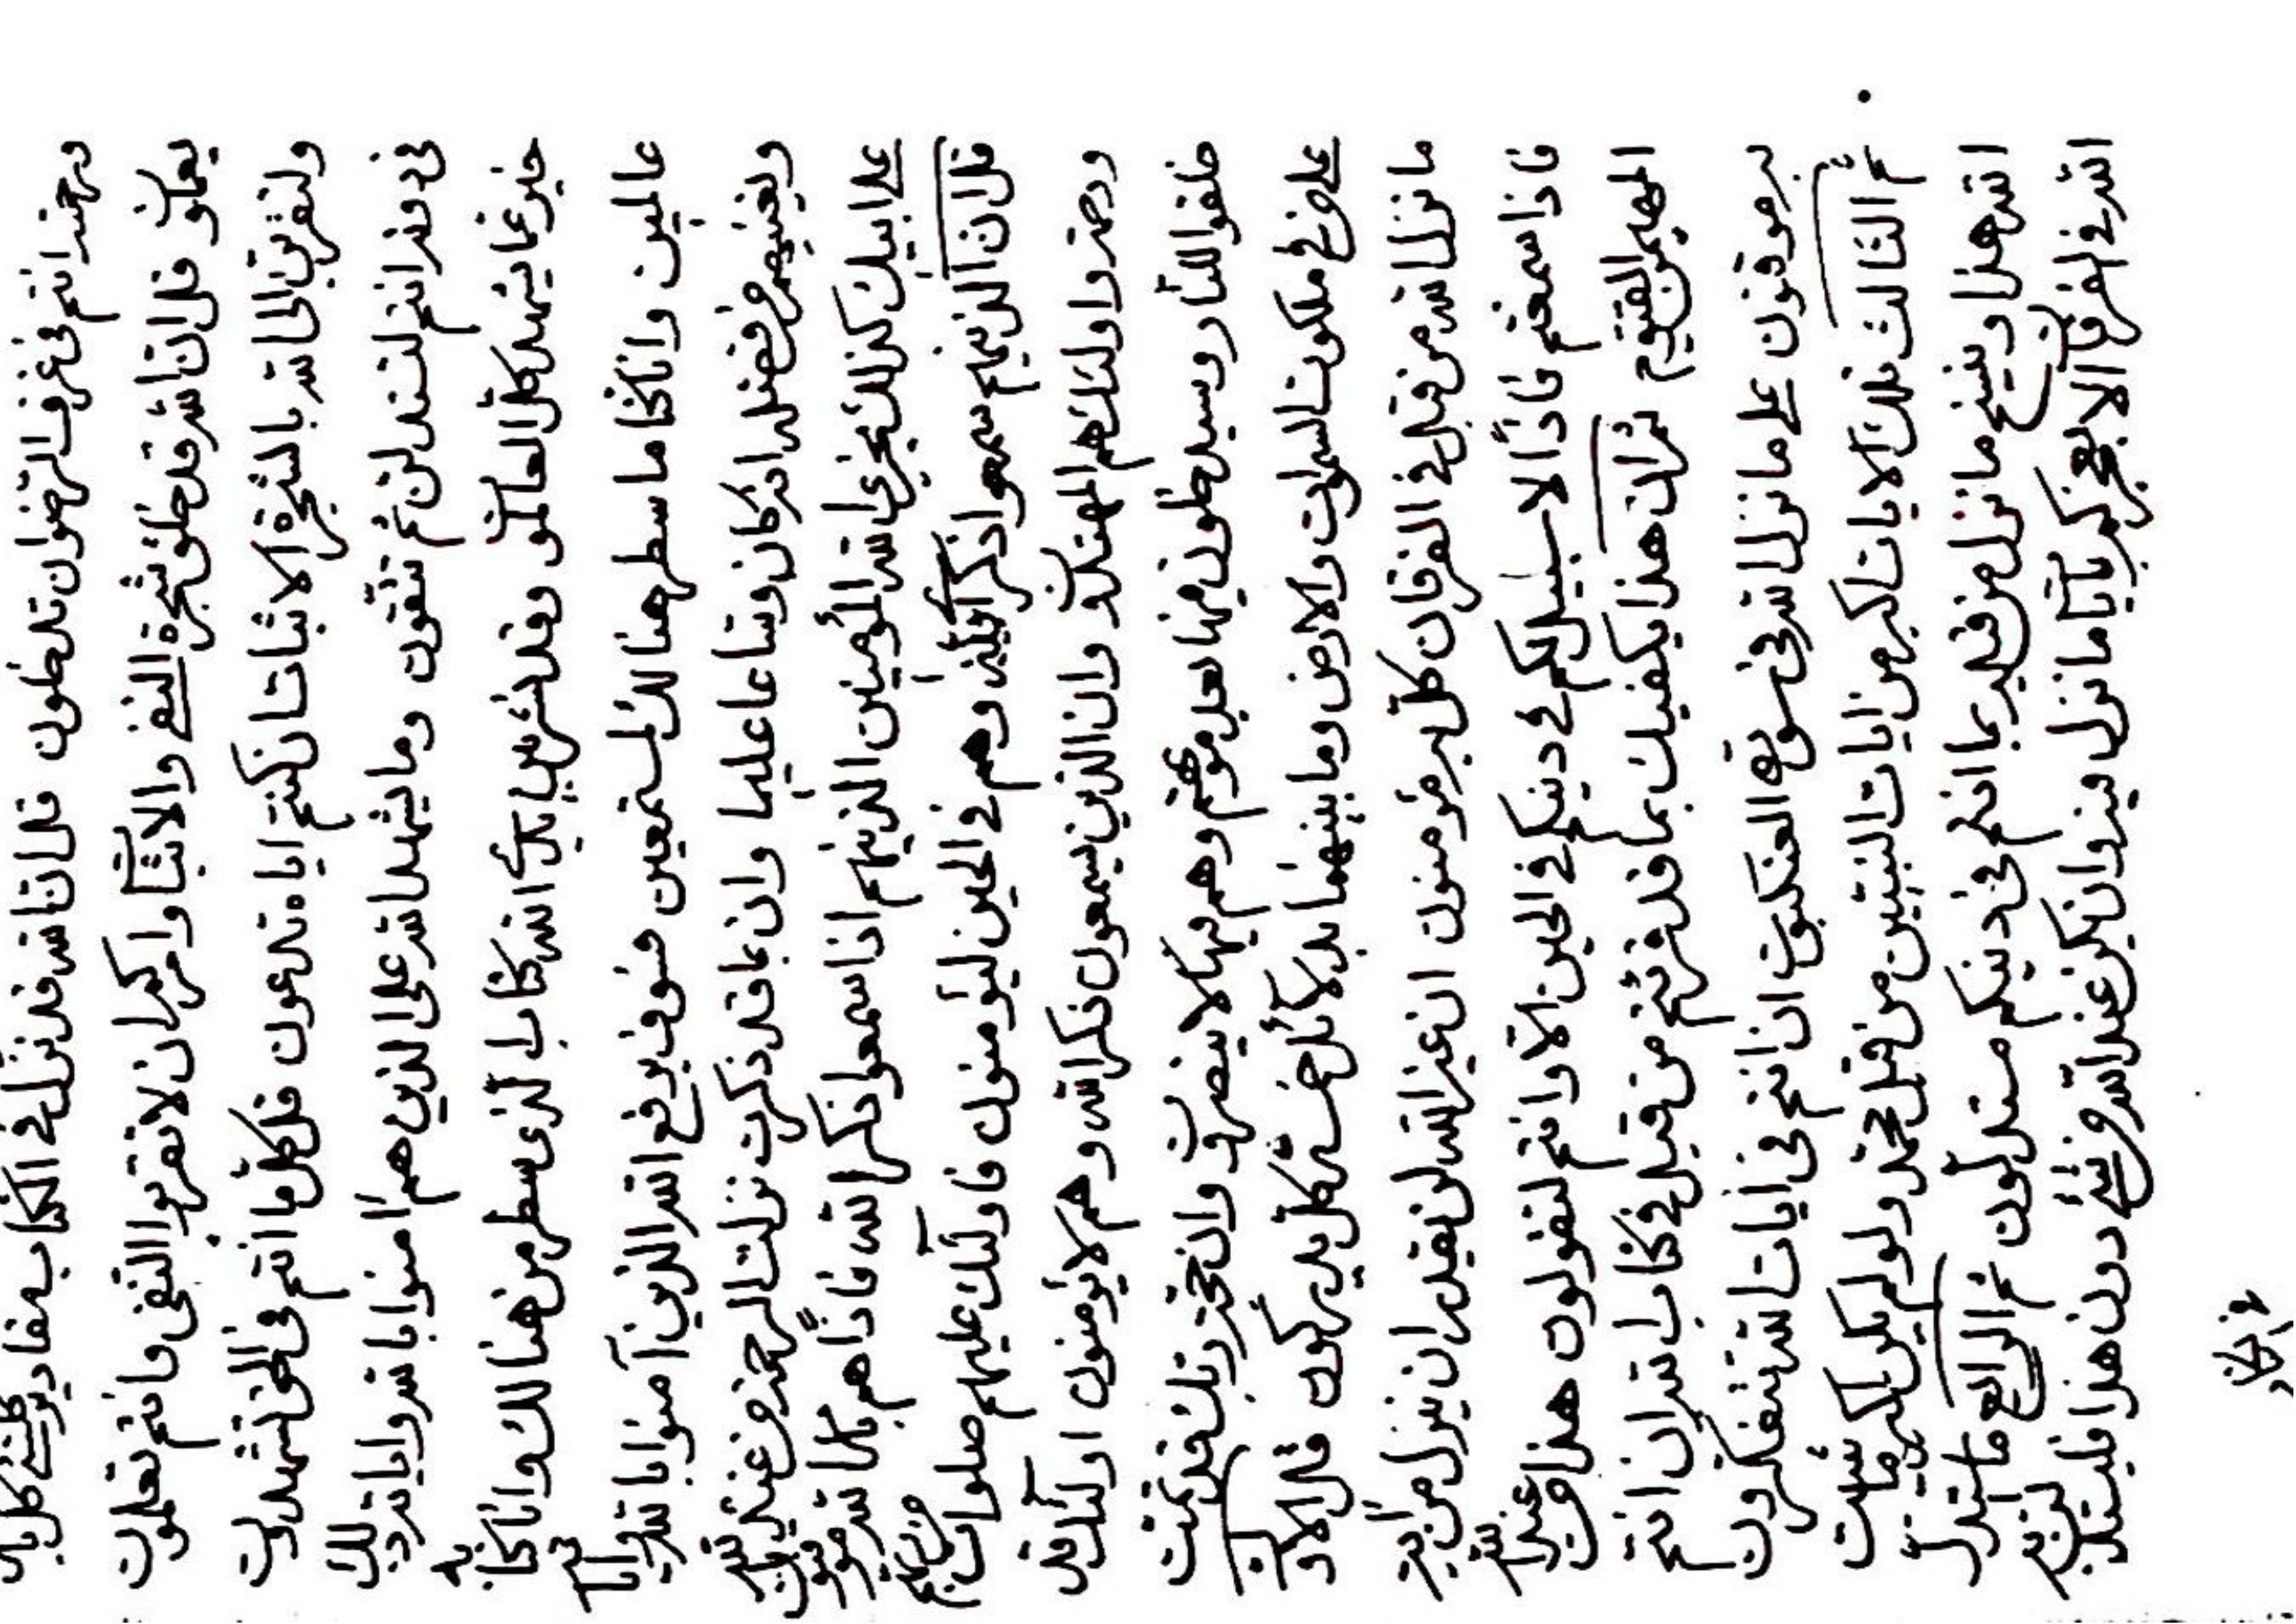 ورحمة انتم في غرف الرضوان تدخلون قل ان الله قد نزل في الكتاب مقادير كلشئ كل به
يعملون قل ان الله قد خلق شجرة النفي والاثبات وامركم ان لا تقربوا النفي وانتم تعلمون
ولتقربن الى الله بالشجرة الاثبات ان كنتم اياه تدعون قل كل ما انتم في الحق لتشهدون
في انتم لتستدلن ثم تتقون وما يشهد الله على الذين هم امنوا بالله واياته ذلك
خير عما يشهد كل العالمون وقد نشر بين يدي الله كتاب الذي سطر من هنالك وانا كنا به
عالمين وانا كنا ما سطر هنالك لمستمعين فسوف يرفع الله الذين آمنوا بالله واياته
ويغنيهم من فضله انه كان وساعا عليما وان بما قد ذكرت نزلت الرحمة من عند
على ابيك كذلك يجزي الله المؤمنين الذينهم اذا سمعوا ذكر الله فاذاً هم بالله موقنون
قل ان الذينهم سمعوا ذكر وهم في الحين ليؤمنون فاولئك عليهم صلوات من ربهم
ورحمة واولئك هم المهتدون وان الذين يسمعون ذكر الله وهم لا يؤمنون اولئك قد
خلقوا للنار وسيدخلون فيها بعد موتهم وهم فيها لا ينصرون وان حجة ربك قد تمت
على من في ملكوت السموات والارض وما بينهما بدلائل خمسة كل يدركون قل الاول
ما نزل الله من قبل في الفرقان كل به مؤمنون ان غير الله لن يقدر ان ينزل من آية
فاذا سمعتم فاذاً لا سبيل لكم في دينكم في الحين الا وانتم لتقولون هذا من عند الله
المهيمن القيوم ثم ان هذا يكفيك بما قد قرئتم من قبل في كتاب الله ان انتم
به موقنون على ما نزل الله في سورة العنكبوت ان انتم في ايات الله تتفكرون
ثم الثالث تلك الايات اكبر من ايات النبيين من قبل محمد ولو لم يكن اكبر ما نسخت
الله هذا وينسخ ما نزل من قبله بما انتم في دينكم مستدلون ثم الرابع ما استدل
الله في الفرقان الا بعجزكم بآيات ما نزل فيه وان يكن عند الله من شئ دون هذا فليستدلن به